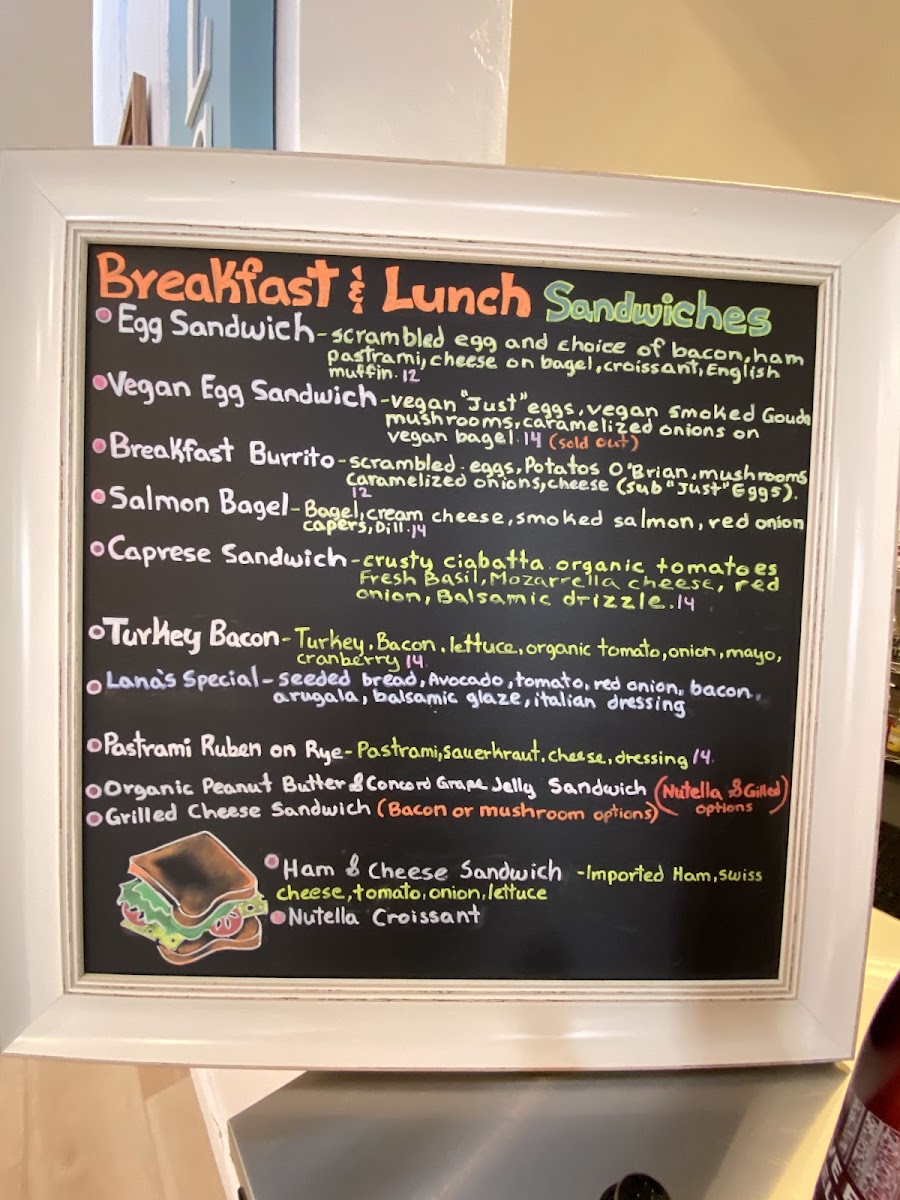 Breakfast & Lunch Sandwiches
Egg Sandwich - scrambled egg and choice of bacon, ham
pastrami, cheese on bagel, croissant, English
muffin. 12
Vegan Egg Sandwich - vegan "Just" eggs, vegan smoked Gouda
mushrooms, caramelized onions on
vegan bagel. 14 (sold out)
Breakfast Burrito - scrambled eggs, Potatos O'Brian, mushrooms
caramelized onions, cheese (sub "Just" Eggs).
12
Salmon Bagel - Bagel, cream cheese, smoked salmon, red onion
capers, Dill. 14
Caprese Sandwich - crusty ciabatta organic tomatoes
Fresh Basil, Mozarrella cheese, red
onion, Balsamic drizzle. 14
Turkey Bacon - Turkey, Bacon, lettuce, organic tomato, onion, mayo,
cranberry 14.
Lana's Special - seeded bread, Avocado, tomato, red onion, bacon,
arugala, balsamic glaze, italian dressing
Pastrami Ruben on Rye - Pastrami, sauerkraut, cheese, dressing 14.
Organic Peanut Butter & Concord Grape Jelly Sandwich (Nutella & Gilled)
options
Grilled Cheese Sandwich (Bacon or mushroom options)
Ham & Cheese Sandwich - Imported Ham, swiss
cheese, tomato, onion, lettuce
Nutella Croissant